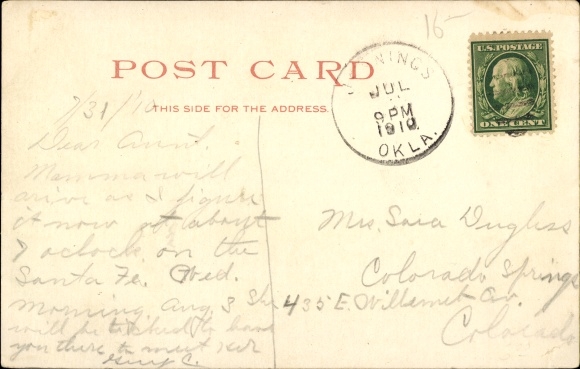 15-
U.S. POSTAGE
ONE CENT
POST CARD
THIS SIDE FOR THE ADDRESS.
JENNINGS
JUL
9 PM
1910
OKLA.
7/31/'10
Dear Aunt. -
Mamma will
arive as I figure
it now at about
7 oclock on the
Santa Fe. Wed.
Morning. Aug. 3 She
will be tickled to have
you there to meet her
C.
Mrs. Sara Dugliss
Colorado Springs
435 E. Willamet Av.
Colorado